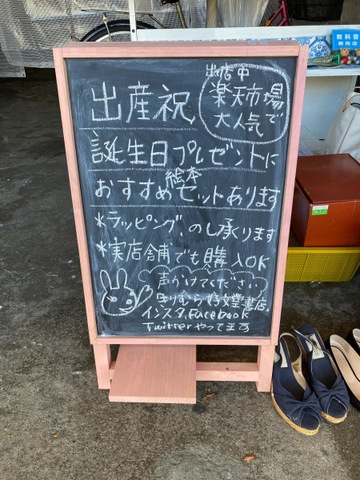 出店中
楽天市場で
大人気
出産祝
誕生日プレゼントに
絵本
おすすめセットあります
*ラッピング のし承ります
*実店舗でも購入OK
声かけてください
きりむら好文堂書店
インスタ,Facebook
Twitterやってます
教科書